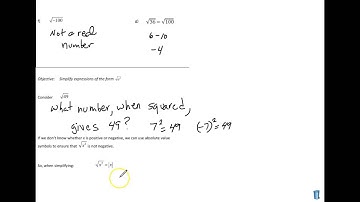 f. √-100 d. √36 - √100
Not a real 6-10
number -4
Objective: Simplify expressions of the form √a²
Consider √49
What number, when squared,
gives 49? 7² = 49 (-7)² = 49
If we don't know whether x is positive or negative, we can use absolute value
symbols to ensure that √x² is not negative.
So, when simplifying: √x² = |x|